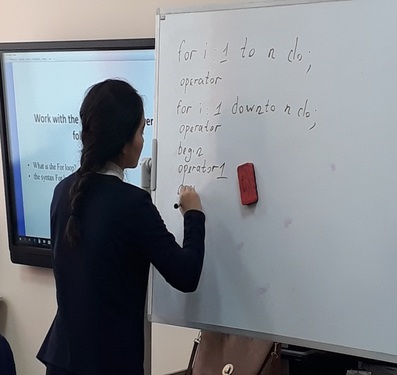 Work with the
fol
• What is the For loop?
• the syntax For
for i 1 to n do;
operator
for i 1 downto n do;
operator
begin
operator1